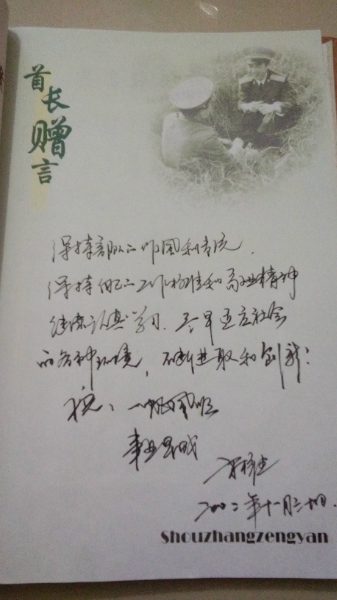 首长赠言
保持部队工作团结传统,
保持自己工作标准和敬业精神
继续认真学习,尽早适应社会
的各种环境,不断进取和创新!
祝:一帆风顺
事业有成
二〇〇二年十一月二十日
Shouzhangzengyan